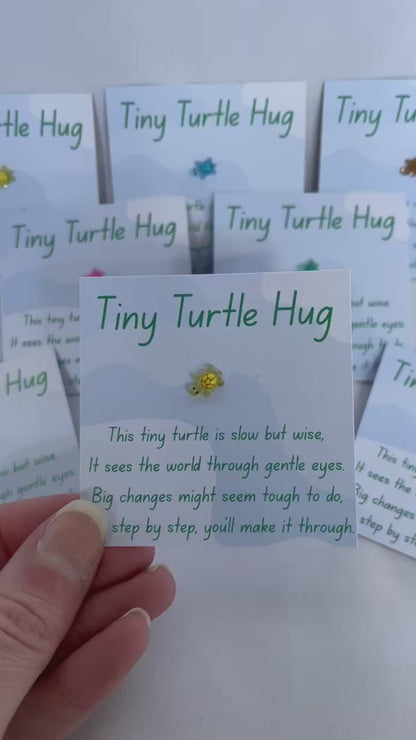 tle Hug
Tiny Turtle Hug
Tiny Tu
Tiny Turtle Hug
Tiny Turtle Hug
This tiny tu
It sees the wo
wise,
gentle eyes.
Hug
w but wise,
gentle eyes.
Tiny Turtle Hug
This tiny turtle is slow but wise,
It sees the world through gentle eyes.
Big changes might seem tough to do,
step by step, you'll make it through.
This tin
It sees the
Big changes
step by st